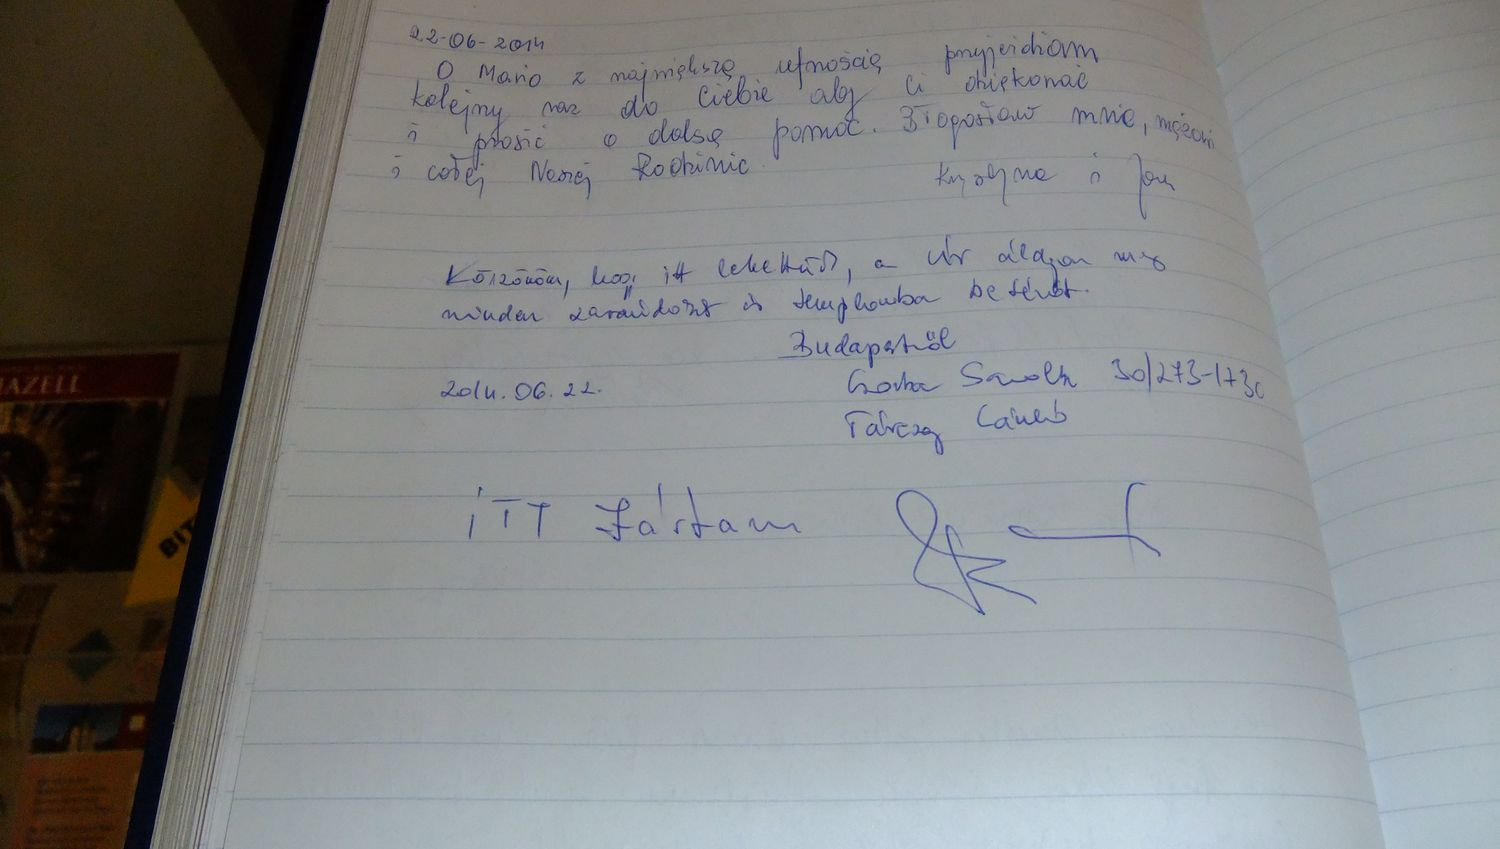 22-06-2014
O Mario z największą ufnością przyjeżdżam
kolejny raz do Ciebie aby Ci dziękować
i prosić o dalszą pomoc. Błogosław mnie, mężowi
i całej Naszej Rodzinie.
Krystyna i Jan
Köszönöm, hogy itt lehettünk, a Úr áldjon meg
minden zarándokot és templomba betérőt.
Budapestről
30/273-1730
2014. 06. 22.
ITT Jártam
AZELL
BIT